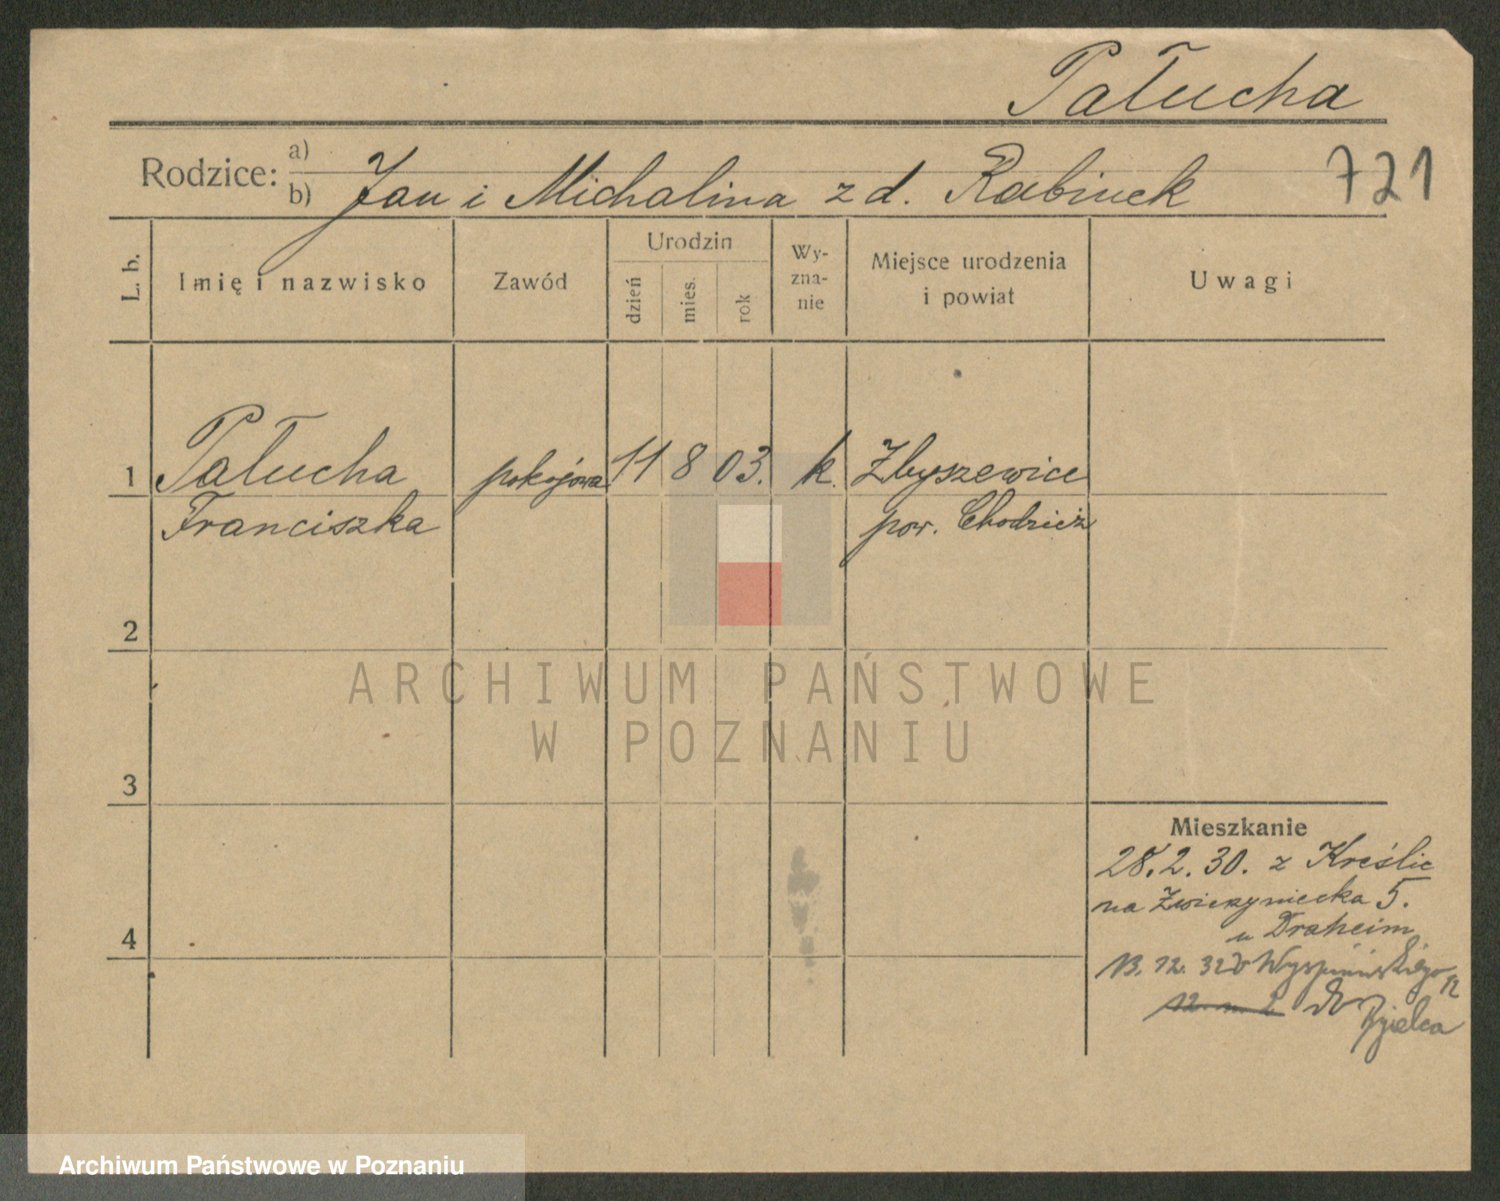 Pałucha
Rodzice:
a)
b) Jan i Michalina z d. Rabinek
721
L. b.
Imię i nazwisko
Zawód
Urodzin
dzień
mies.
rok
Wy-
zna-
nie
Miejsce urodzenia
i powiat
Uwagi
1 Pałucha pokojowa 11 8 03. k. Zbyszewice
Franciszka pow. Chodzież
2
3
4
Mieszkanie
28.2.30. z Kreślic
na Zwierzyniecka 5.
u Draheim
13.12.32 Wyspiańskiego 12
12 m 2
ARCHIWUM PAŃSTWOWE
W POZNANIU
Archiwum Państwowe w Poznaniu